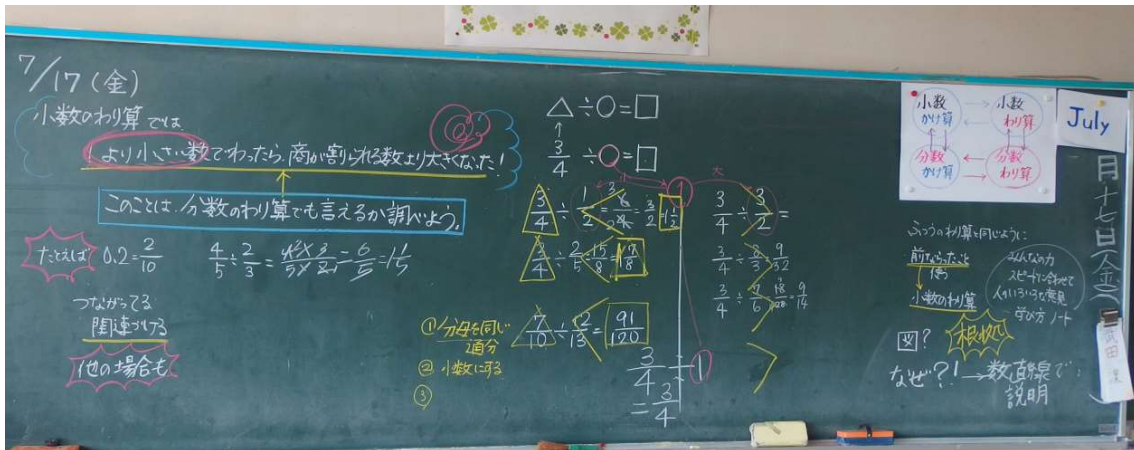 7/17(金)
小数のわり算では、
1より小さい数でわったら、商が割られる数より大きくなった!
このことは、分数のわり算でも言えるか調べよう。
たとえば 0.2=2/10
4/5÷2/3=4×3/5×2=6/5=1 1/5
つながってる
関連づける
他の場合も
①分母を同じ
通分
②小数にする
③
△÷○=□
↑
3/4÷○=□
3/4÷1/2=
=3/2=1 1/2
3/4÷2/5=15/8=1 7/8
7/10÷12/13=91/120
3/4÷1
=3/4
1
大
3/4÷3/2=
3/4÷8/3 9/32
3/4÷7/6 18/28=9/14
小数
かけ算
小数
わり算
分数
かけ算
分数
わり算
July
月十七日(金)
ふつうのわり算と同じように
前ならったこと
使う
小数のわり算
みんなの力
スピードに合わせて
学び方 ノート
図?
根拠
なぜ?!→数直線で
説明
武田